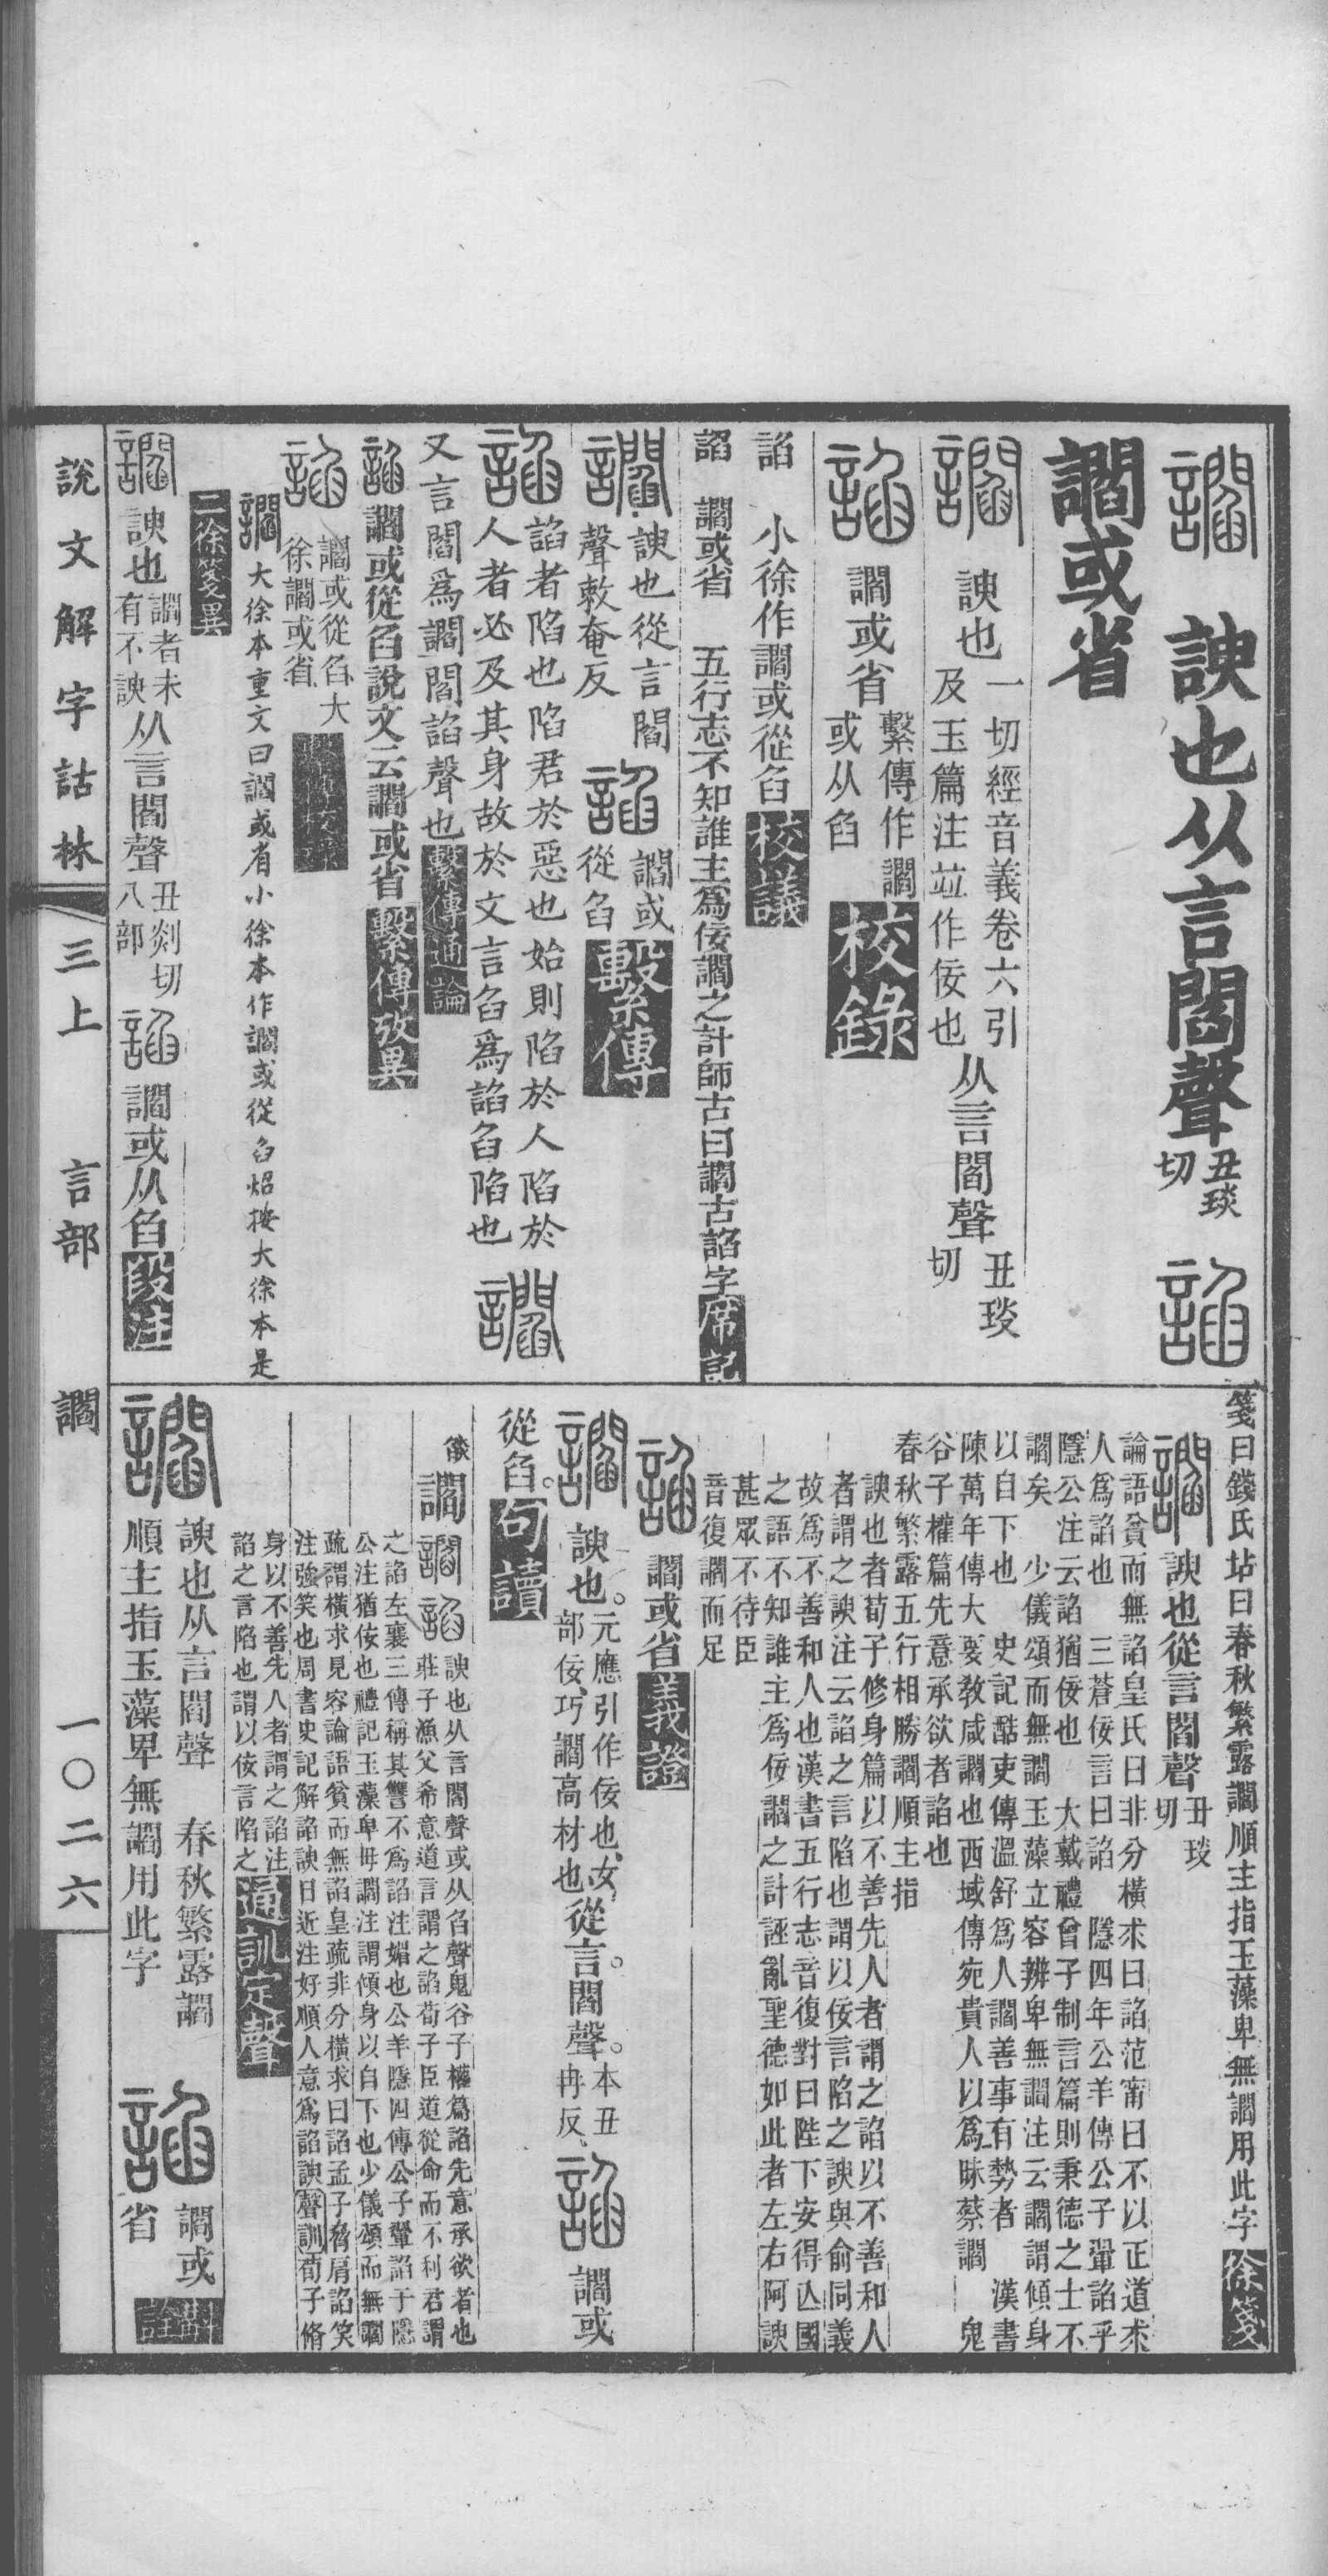 讇 諛也从言閻聲丑琰切 諂
讇或省
讇 諛也一切經音義卷六引及玉篇注竝作佞也从言閻聲丑琰切
諂 讇或省繫傳作讇或从臽校錄
諂 小徐作讇或從臽校議
諂 讇或省 五行志不知誰主爲佞讇之計師古曰讇古諂字席記
讇 諛也從言閻聲敕奄反 諂 讇或從臽繫傳
諂 諂者陷也陷君於惡也始則陷於人陷於人者必及其身故於文言臽爲諂臽陷也 讇
又言閻爲讇閻諂聲也繫傳通論
諂 讇或從臽說文云讇或省繫傳攷異
諂 讇或從臽大徐讇或省
讇 大徐本重文曰讇或省小徐本作讇或從臽炤按大徐本是
二徐箋異
讇 諛也讇者未有不諛从言閻聲丑剡切八部 諂 讇或从臽段注
箋曰錢氏坫曰春秋繁露讇順主指玉藻卑無讇用此字徐箋
讇 諛也從言閻聲丑琰切
論語貧而無諂皇氏曰非分橫求曰諂范甯曰不以正道求
人爲諂也 三蒼佞言曰諂 隱四年公羊傳公子翬諂乎
隱公注云諂猶佞也 大戴禮曾子制言篇則秉德之士不
讇矣 少儀頌而無讇玉藻立容辨卑無讇注云讇謂傾身
以自下也 史記酷吏傳溫舒爲人讇善事有勢者 漢書
陳萬年傳大要敎咸讇也西域傳宛貴人以爲昧蔡讇 鬼
谷子權篇先意承欲者諂也
春秋繁露五行相勝讇順主指
諛也者荀子修身篇以不善先人者謂之諂以不善和人
者謂之諛注云諂之言陷也謂以佞言陷之諛與俞同義
故爲不善和人也漢書五行志音復對曰陛下安得亾國
之語不知誰主爲佞讇之計誣亂聖德如此者左右阿諛
甚眾不待臣
音復讇而足
諂 讇或省義證
讇 諛也。元應引作佞也、女部佞、巧讇高材也從言。閻聲。本丑冉反、 諂 讇或
從臽。句讀
讇 讇 諂 諛也从言閻聲或从臽聲鬼谷子權篇諂先意承欲者也
莊子漁父希意道言謂之諂荀子臣道從命而不利君謂
之諂左襄三傳稱其讐不爲諂注媚也公羊隱四傳公子翬諂于隱
公注猶佞也禮記玉藻卑毋讇注謂傾身以自下也少儀頌而無讇
疏謂橫求見容論語貧而無諂皇疏非分橫求曰諂孟子脅肩諂笑
注強笑也周書史記解諂諛日近注好順人意爲諂諛聲訓荀子脩
身以不善先人者謂之諂注
諂之言陷也謂以佞言陷之通訓定聲
讇 諛也从言閻聲 春秋繁露讇順主指玉藻卑無讇用此字 諂 讇或省斠詮
說文解字詁林 三上 言部 讇 一〇二六